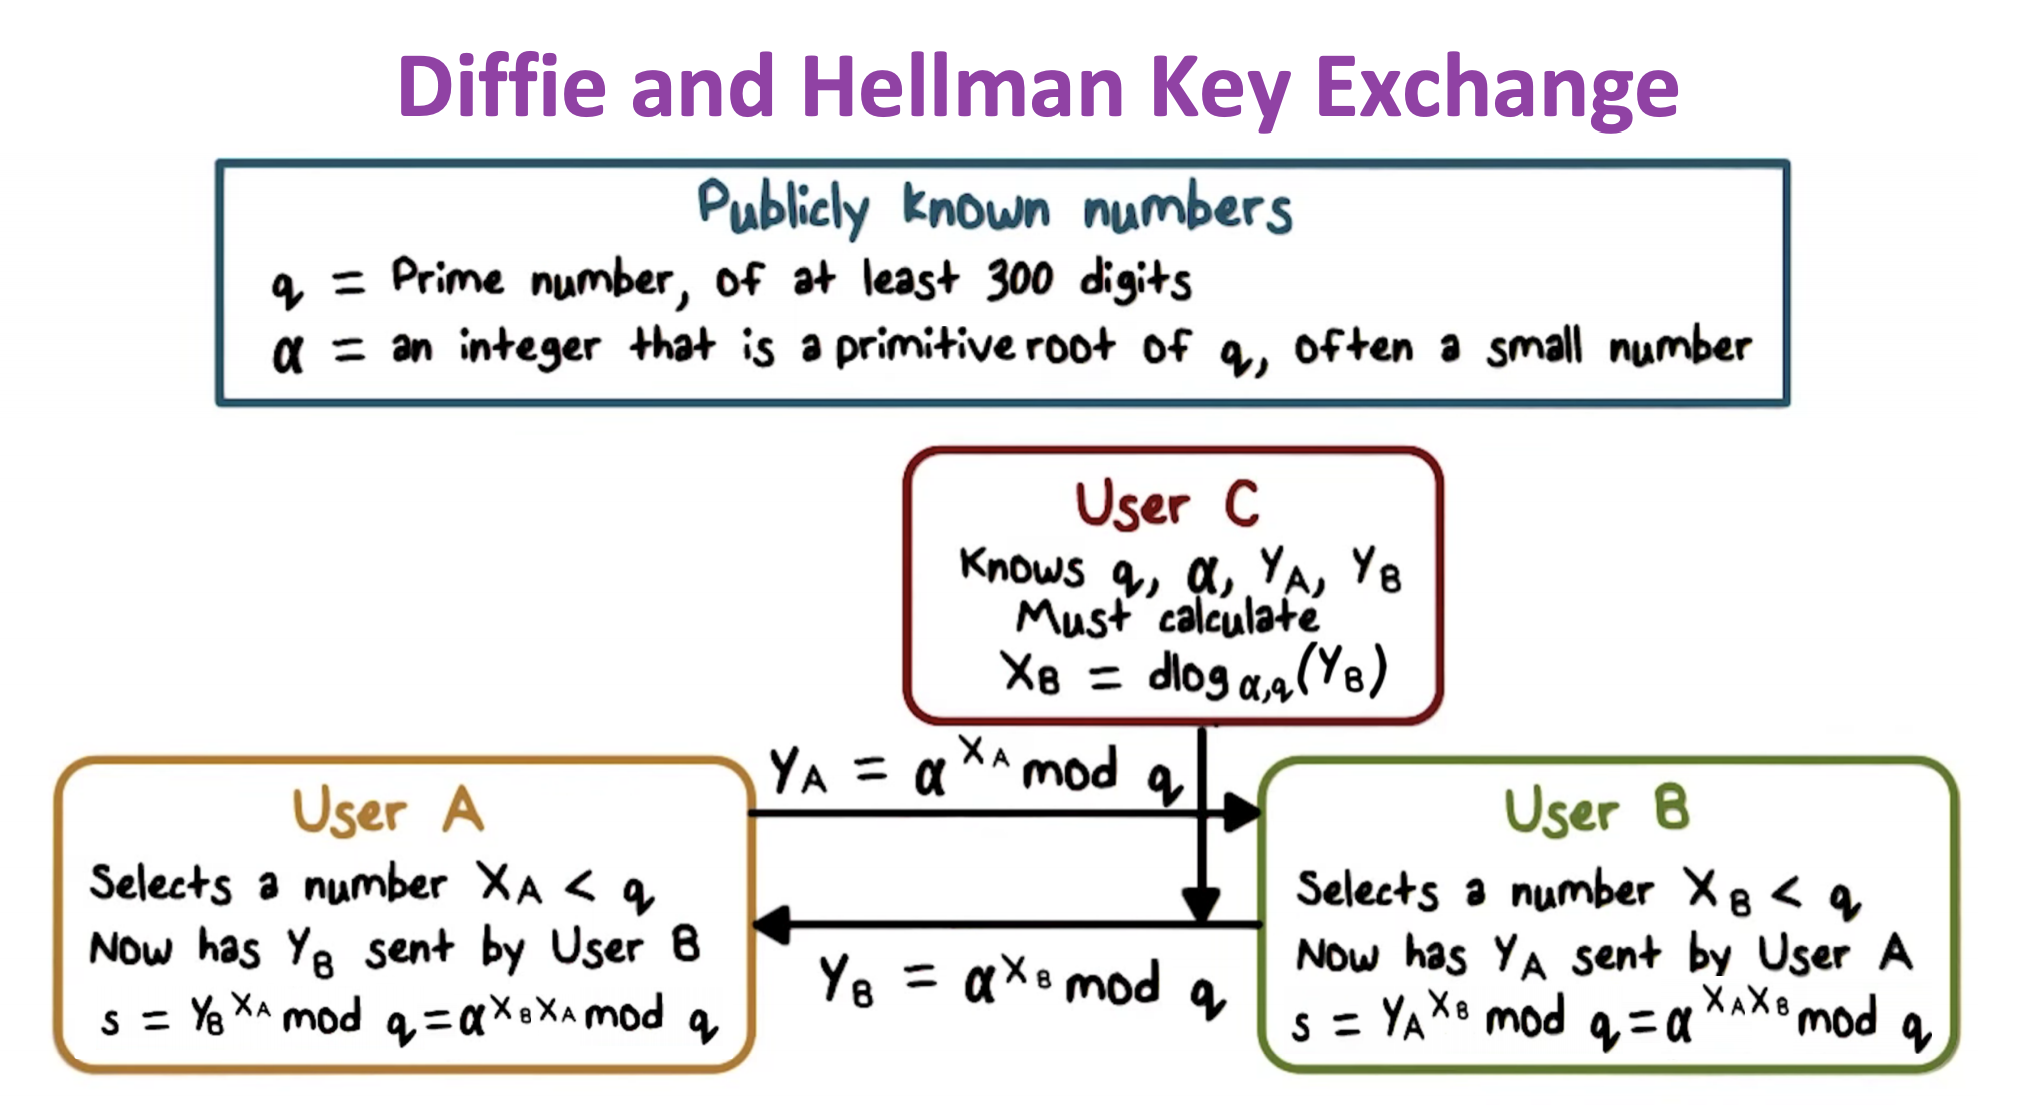 Diffie and Hellman Key Exchange
Publicly known numbers
q = Prime number, of at least 300 digits
α = an integer that is a primitive root of q, often a small number
User C
Knows q, α, Y_A, Y_B
Must calculate
X_B = dlog_α,q(Y_B)
Y_A = α^X_A mod q
User A
Selects a number X_A < q
Now has Y_B sent by User B
s = Y_B^X_A mod q = α^X_B X_A mod q
Y_B = α^X_B mod q
User B
Selects a number X_B < q
Now has Y_A sent by User A
s = Y_A^X_B mod q = α^X_A X_B mod q